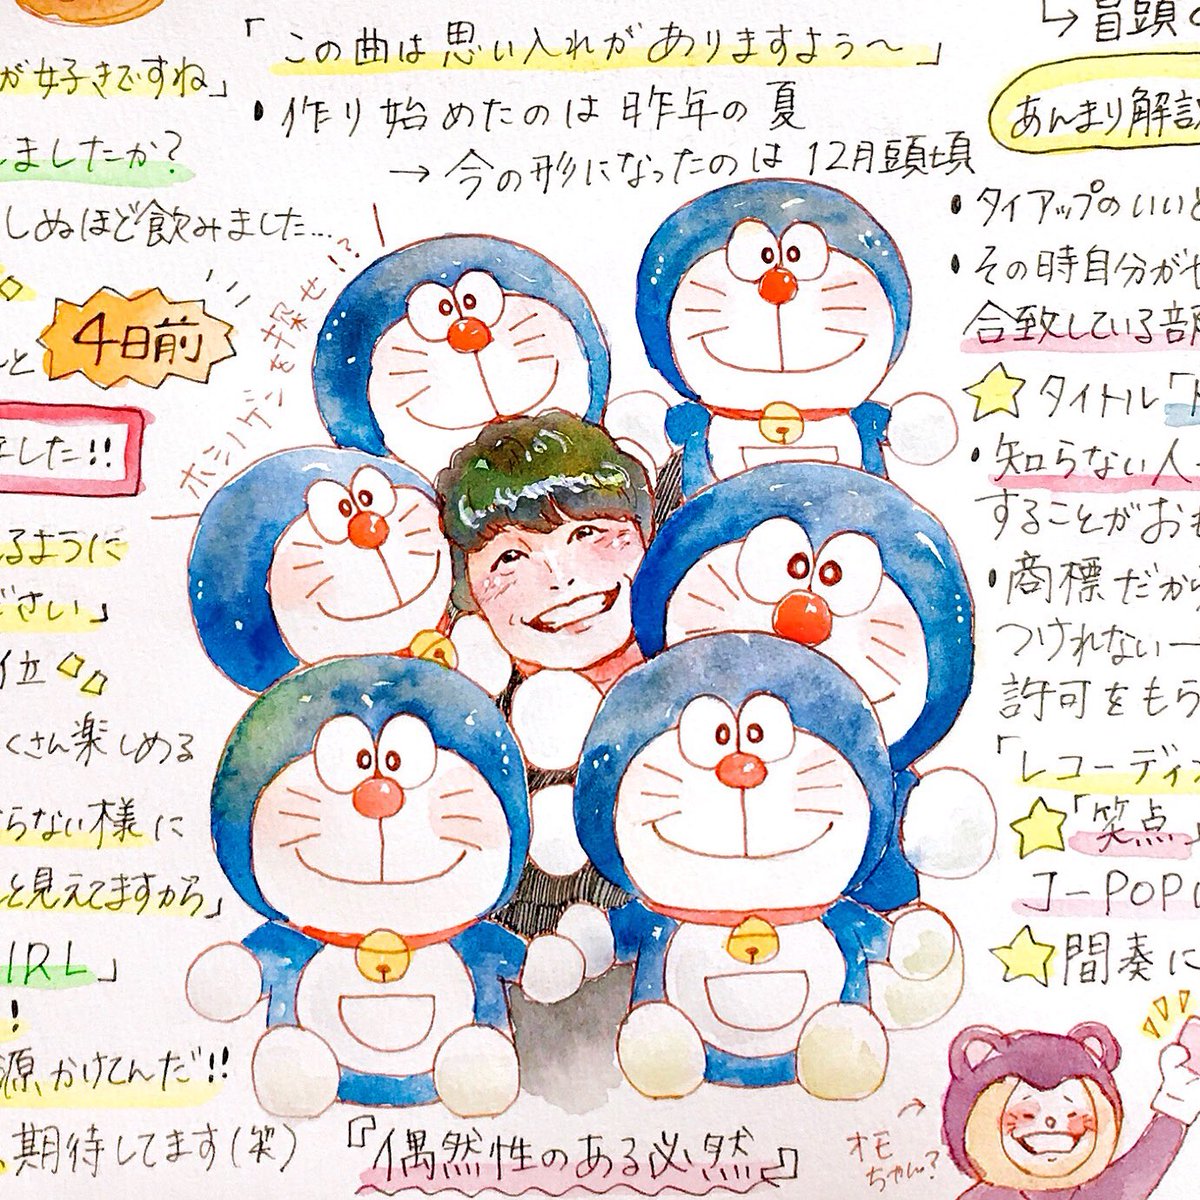 「この曲は思い入れがありますよう〜」
・作り始めたのは昨年の夏
→ 今の形になったのは12月頭頃
が好きですね」
しましたか?
しぬほど飲みました…
4日前
した!!
るように
ださい」
位
くさん楽しめる
らない様に
と見えてますから」
IRL」
!
源かけてんだ!!
期待してます(笑)
ホシノゲンを探せ!?
『偶然性のある必然』
→ 冒頭
あんまり解説
・タイアップのいい
・その時自分がや
合致している部
☆ タイトル「ド
・知らない人
することがおそ
・商標だから
つけれない一
許可をもら
「レコーディ
☆「笑点」
J-POP
☆ 間奏に
オモ
ちゃん?